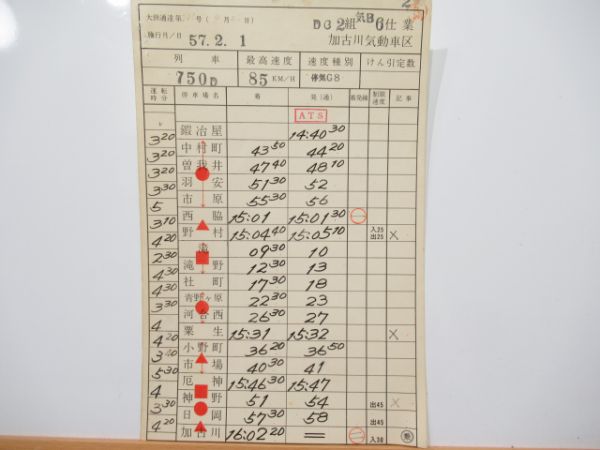 大鉄達第 号( 月 日)
施行月/日 57.2.1
DC2組 気B6仕業
加古川気動車区
列車 最高速度 速度種別 けん引定数
750D 85KM/H 停気G8
運転時分 停車場名 着 発(通) 着発線 制限速度 記事
ATS
鍛冶屋 14:40 30
3 20
中村町 43 50 44 20
3 20
曽我井 47 40 48 10
3 20
羽安 51 30 52
3 30
市原 55 30 56
5
西脇 15:01 15:01 30 一
3 10
野村 15:04 40 15:05 10 入35 出25 ×
4 20
滝 09 30 10
2 30
滝野 12 30 13
4 30
社町 17 30 18
4 30
青野ヶ原 22 30 23
3 30
河合西 26 30 27
4
粟生 15:31 15:32 ×
4 20
小野町 36 20 36 50
3 40
市場 40 30 41
5 30
厄神 15:46 30 15:47
4
神野 51 54 出45 ×
3 30
日岡 57 30 58 出45
4 20
加古川 16:02 20 = 入36